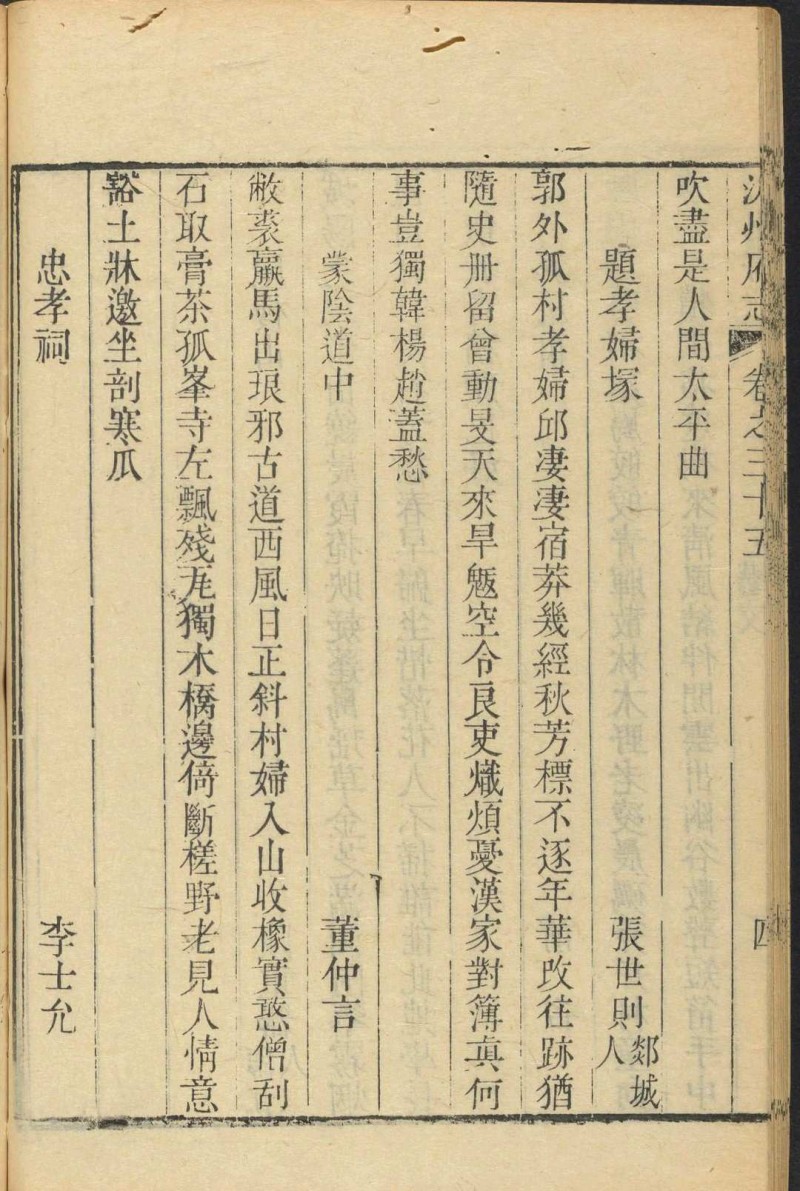 沂州府志 卷之三十五 四
吹盡是人間太平曲
題孝婦塚 張世則 郯城人
郭外孤村孝婦邱淒淒宿莽幾經秋芳標不逐年華改往跡猶
隨史册留曾動旻天來旱魃空令良吏熾煩憂漢家對簿眞何
事豈獨韓楊趙蓋愁
蒙陰道中 董仲言
敝裘羸馬出琅邪古道西風日正斜村婦入山收橡實憨僧刮
石取膏茶孤峯寺左飄殘瓦獨木橋邊倚斷槎野老見人情意
豁土牀邀坐剖寒瓜
忠孝祠 李士允